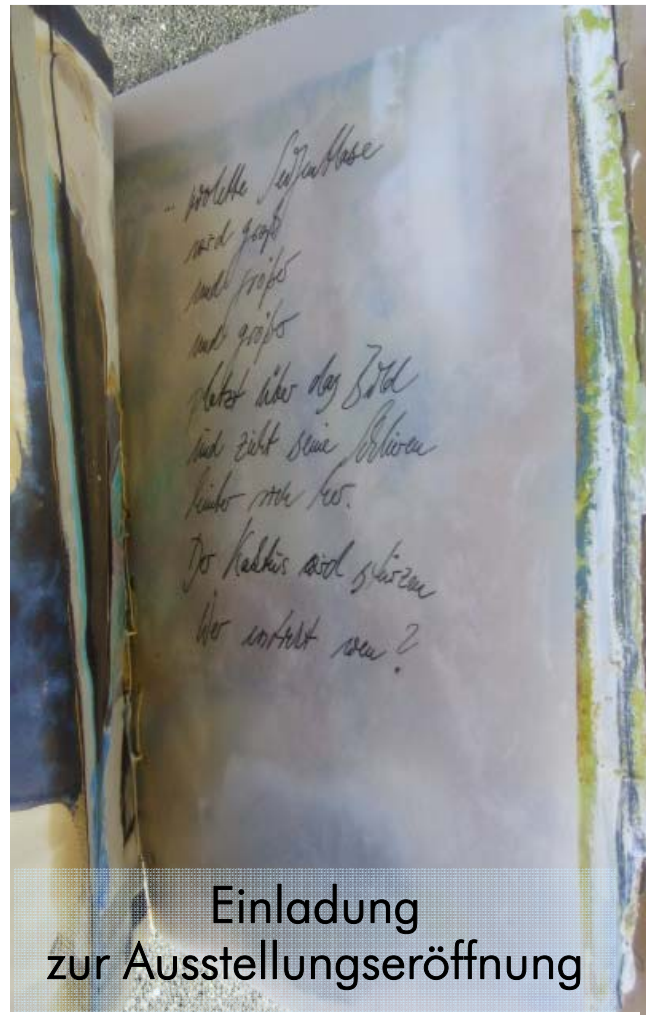 .. violette Seifenblase
wird groß
und größer
und größer
platzt über das Bild
und zieht seine Schlieren
hinter sich her.
Der Kaktus wird stürzen
Wer versteht wen?
Einladung
zur Ausstellungseröffnung